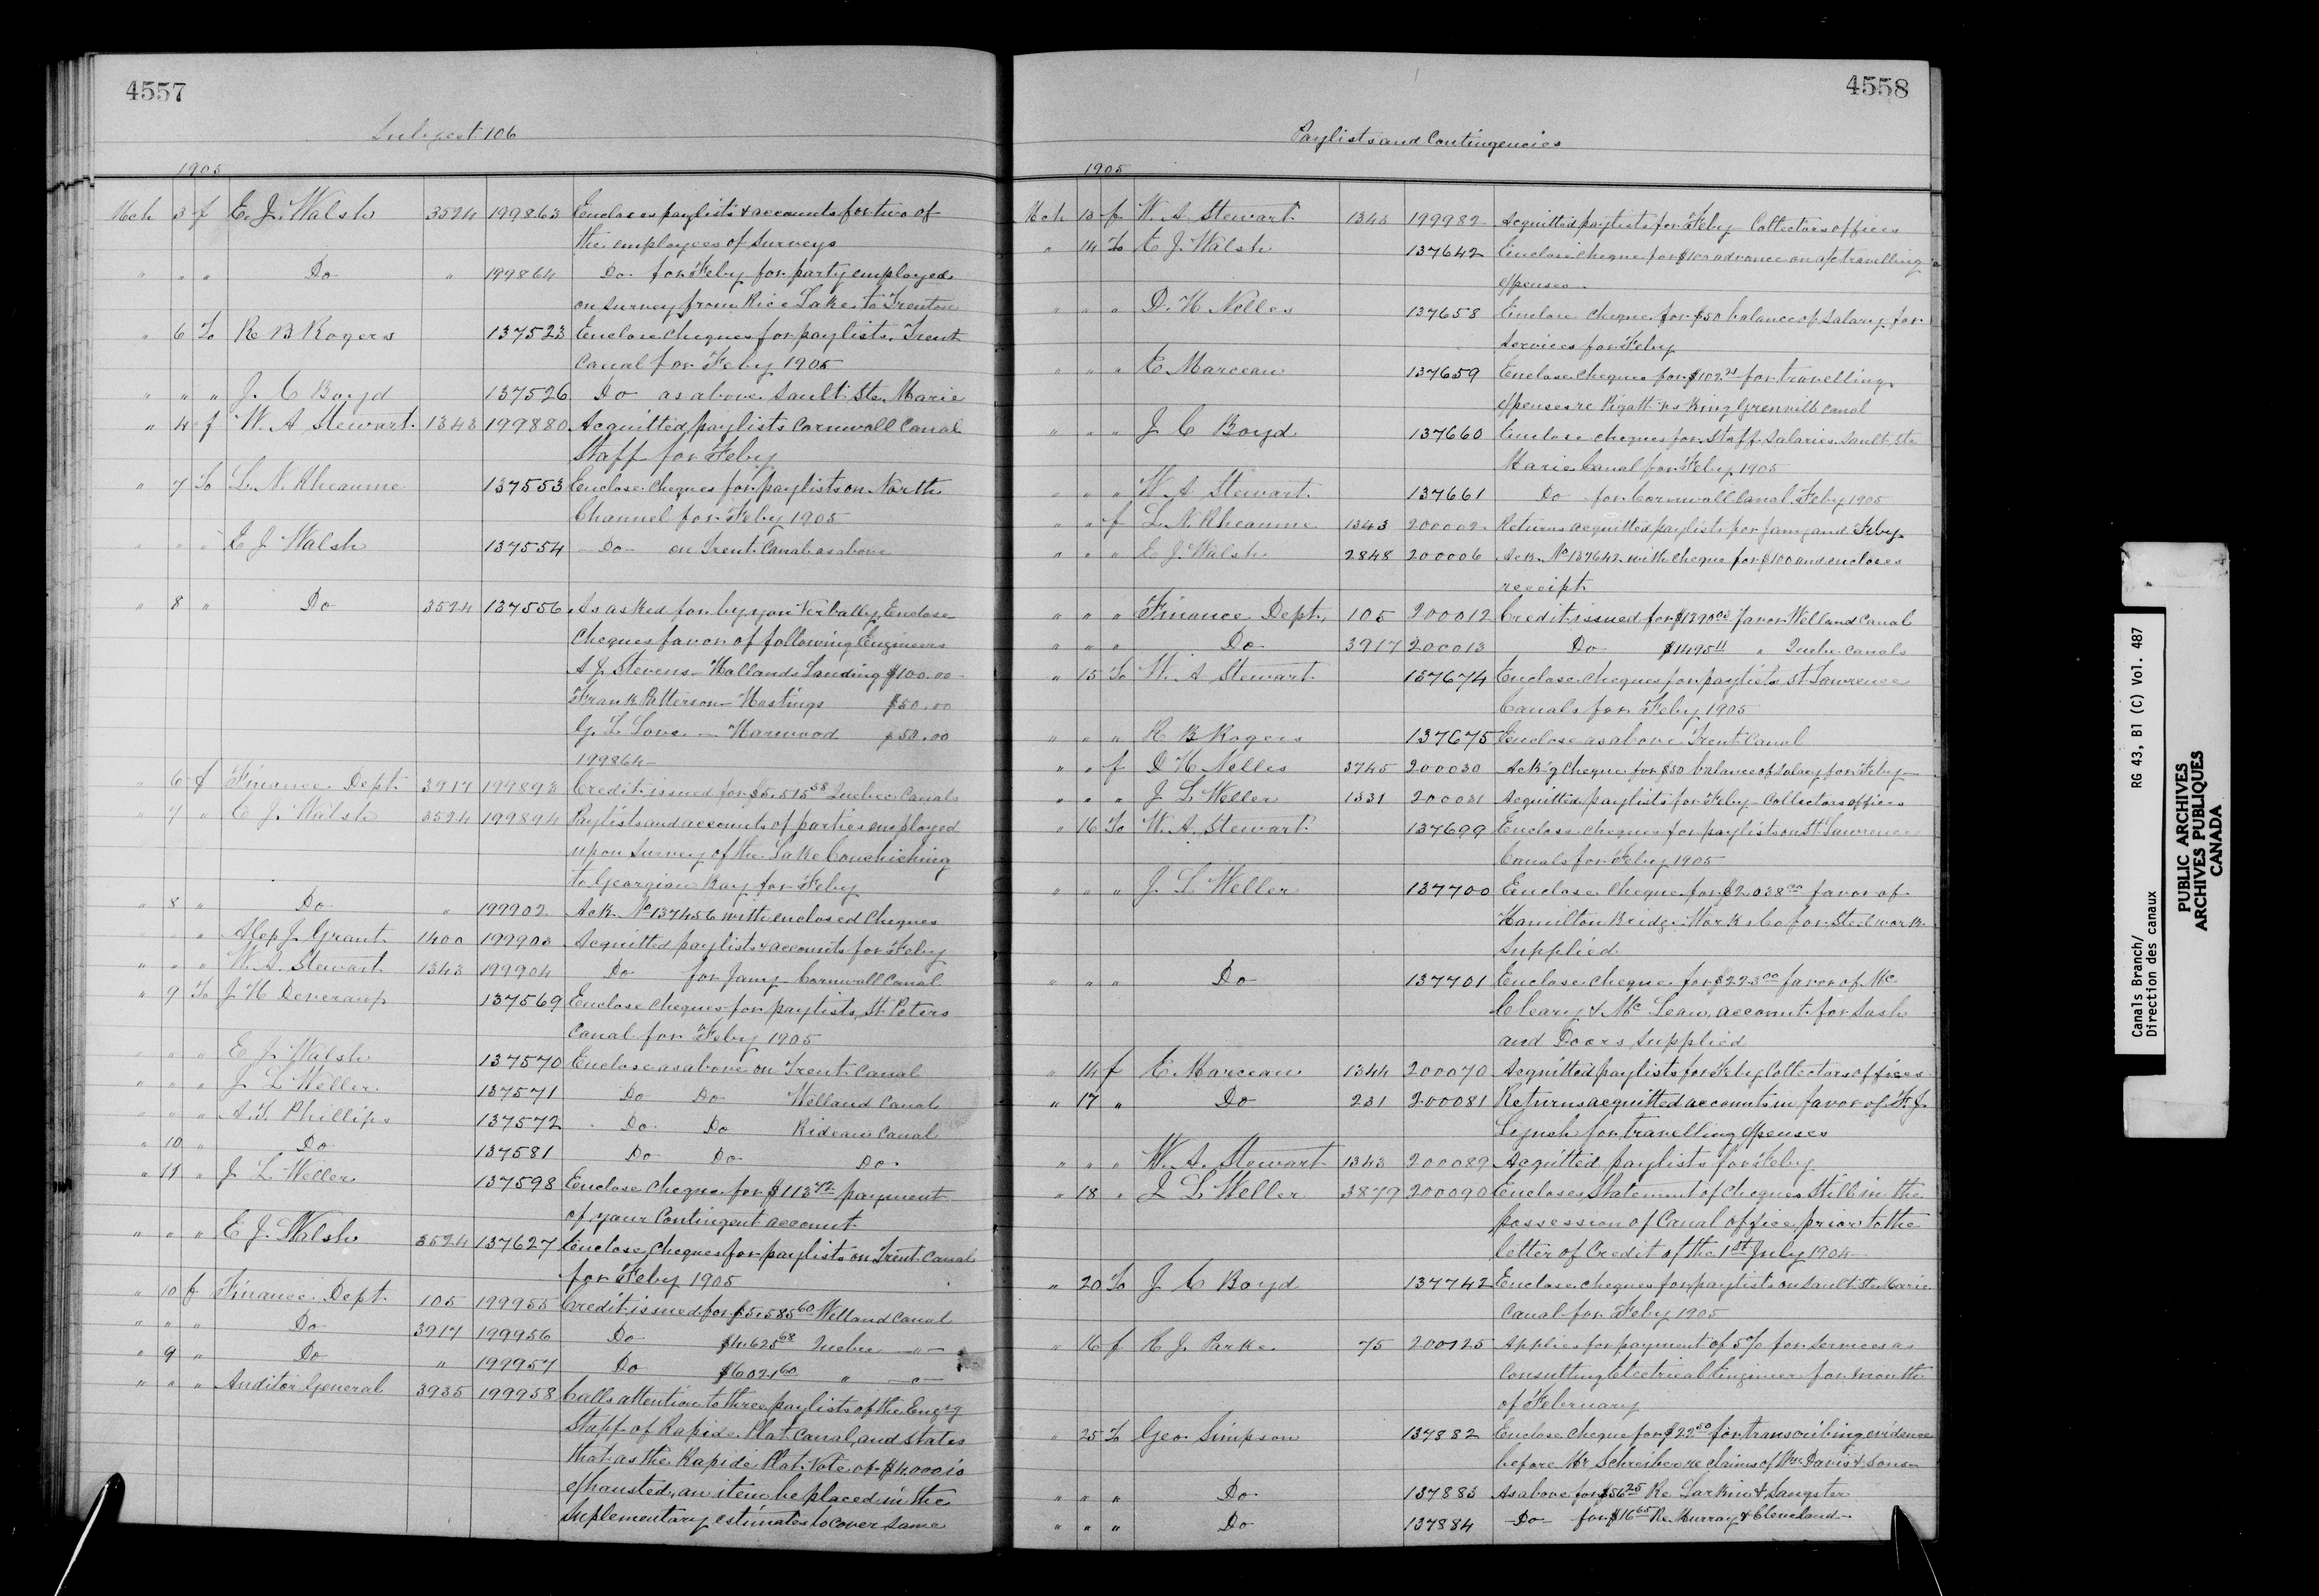 4557
Subject 106
1905
Mch 3 f E. J. Walsh 3524 199863 Encloses paylists & accounts for two of
the employees of Surveys
" " " Do " 199864 Do for Feby for party employed
on survey from Rice Lake to Trenton
" 6 To R B Rogers 137523 Enclose cheques for paylists Trent
Canal for Feby 1905
" " " J. C Boyd 137526 Do as above Sault Ste Marie
" 4 f W. A Stewart 1343 199880 Acquitted paylists Cornwall Canal
Staff for Feby
" 7 To L. N. Rheaume 137553 Enclose cheques for paylists on North
Channel for Feby 1905
" " " E J Walsh 137554 Do on Trent Canal as above
" 8 " Do 3524 137556 As asked for by you Verbally, Enclose
Cheques favor of following Engineers
A J. Stevens Hollands Landing $100.00
Frank Patterson - Hastings $50.00
G. L Love - Harwood $50.00
199864
" 6 f Finance Dept. 3917 199893 Credit issued for $5,515 38 Quebec Canals
" 7 " E J. Walsh 3524 199894 Paylists and accounts of parties employed
upon Survey of the Lake Couchiching
to Georgian Bay for Feby
" 8 " Do " 199902 Ack. No 137456 with enclosed cheques
" " " Alex J. Grant 1400 199903 Acquitted paylists & accounts for Feby
" " " W. A. Stewart 1343 199904 Do for Jany Cornwall Canal
" 9 To J H Deveraux 137569 Enclose cheques for paylists, St. Peters
Canal for Feby 1905
" " " E J. Walsh 137570 Enclose as above on Trent Canal
" " " J. L Weller 137571 Do Do Welland Canal
" " " A. T. Phillips 137572 Do Do Rideau Canal
" 10 " Do 137581 Do Do Do
" 11 " J L Weller 137598 Enclose cheque for $113 42 payment
of your Contingent account
" " " E J. Walsh 3524 137627 Enclose cheques for paylists on Trent Canal
for Feby 1905
" 10 f Finance Dept. 105 199955 Credit issued for $5,585 60 Welland Canal
" " " Do 3917 199956 Do $4625 68 Quebec "
" 9 " Do " 199957 Do $6021 60 " "
" " " Auditor General 3935 199958 Calls attention to three paylists of the Engrg
Staff of Rapide Plat Canal, and states
that as the Rapide Plat Vote of $4,000 is
exhausted, an item be placed in the
Suplementary estimates to cover same
4558
Paylists and Contingencies
1905
Mch 13 f W. A. Stewart 1343 199982 Acquitted paylists for Feby Collectors offices
" 14 To E J. Walsh 137642 Enclose cheque for $100 advance on a/c travelling
expenses
" " " D. H Nelles 137658 Enclose cheque for $50 balance of salary for
services for Feby
" " " E Marceau 137659 Enclose cheques for $102 21 for travelling
expenses re Rigatt vs King Grenville Canal
" " " J C Boyd 137660 Enclose cheques for Staff salaries Sault Ste
Marie Canal for Feby 1905
" " " W. A Stewart 137661 Do for Cornwall Canal Feby 1905
" " f L. N. Rheaume 1343 200002 Returns acquitted paylists for Jany and Feby
" " " E J. Walsh 2848 200006 Ack. No 137642 with cheque for $100 and encloses
receipt
" " " Finance Dept. 105 200012 Credit issued for $1390 03 favor Welland Canal
" " " Do 3917 200013 Do $1495 11 " Quebec Canals
" 15 To W. A Stewart 137674 Enclose cheques for paylists St Lawrence
Canals for Feby 1905
" " " R B Rogers 137675 Enclose as above Trent Canal
" " f D H Nelles 3745 200030 Ack'g cheque for $50 balance of salary for Feby
" " " J L Weller 1331 200031 Acquitted paylists for Feby - Collectors offices
" 16 To W. A. Stewart 137699 Enclose cheques for paylists on St. Lawrence
Canals for Feby 1905
" " " J. L Weller 137700 Enclose cheque for $2038 00 favor of
Hamilton Bridge Works Co for Steel work
supplied
" " " Do 137701 Enclose cheque for $223 00 favor of Mc
Cleary & Mc Lean, account for Sash
and Doors supplied
" 14 f E. Marceau 1344 200070 Acquitted paylists for Feby Collectors offices
" 17 " Do 231 200081 Returns acquitted accounts in favor of F. J.
Lynch for travelling expenses
" " " W. A. Stewart 1343 200089 Acquitted paylists for Feby
" 18 " J L Weller 3879 200090 Encloses Statement of cheques Still in the
possession of Canal office prior to the
letter of Credit of the 1st July 1904
" 20 To J C Boyd 137742 Enclose cheques for paylists on Sault Ste Marie
Canal for Feby 1905
" 16 f R J. Parke 75 200125 Applies for payment of 5% for services as
Consulting Electrical Engineer for month
of February
" 25 To Geo. Simpson 137882 Enclose cheque for $22 50 for transcribing evidence
before Mr Schreiber re claims of Wm Davis & Sons
" " " Do 137883 As above for $56 25 Re Larkin & Sangster
" " " Do 137884 Do for $16 65 Re. Murray & Cleveland
Canals Branch/
Direction des canaux
RG 43, B1 (C) Vol. 487
PUBLIC ARCHIVES
ARCHIVES PUBLIQUES
CANADA